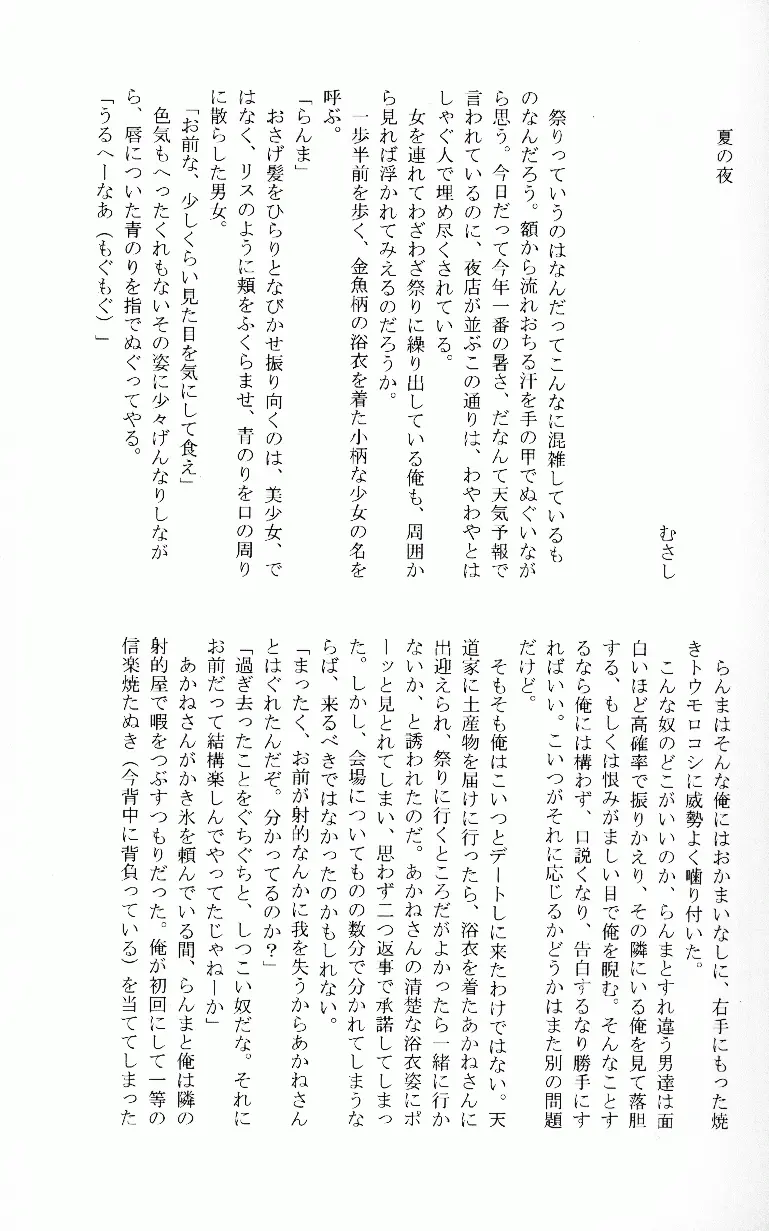 夏の夜
むさし
祭りっていうのはなんだってこんなに混雑しているも
のなんだろう。額から流れおちる汗を手の甲でぬぐいなが
ら思う。今日だって今年一番の暑さ、だなんて天気予報で
言われているのに、夜店が並ぶこの通りは、わやわやとは
しゃぐ人で埋め尽くされている。
女を連れてわざわざ祭りに繰り出している俺も、周囲か
ら見れば浮かれてみえるのだろうか。
一歩半前を歩く、金魚柄の浴衣を着た小柄な少女の名を
呼ぶ。
「らんま」
おさげ髪をひらりとなびかせ振り向くのは、美少女、で
はなく、リスのように頬をふくらませ、青のりを口の周り
に散らした男女。
「お前な、少しくらい見た目を気にして食え」
色気もへったくれもないその姿に少々げんなりしなが
ら、唇についた青のりを指でぬぐってやる。
「うるへーなあ（もぐもぐ）」
らんまはそんな俺にはおかまいなしに、右手にもった焼
きトウモロコシに威勢よく噛り付いた。
こんな奴のどこがいいのか、らんまとすれ違う男達は面
白いほど高確率で振りかえり、その隣にいる俺を見て落胆
する、もしくは恨みがましい目で俺を睨む。そんなことす
るなら俺には構わず、口説くなり、告白するなり勝手にす
ればいい。こいつがそれに応じるかどうかはまた別の問題
だけど。
そもそも俺はこいつとデートしに来たわけではない。天
道家に土産物を届けに行ったら、浴衣を着たあかねさんに
出迎えられ、祭りに行くところだがよかったら一緒に行か
ないか、と誘われたのだ。あかねさんの清楚な浴衣姿にポ
ーッと見とれてしまい、思わず二つ返事で承諾してしまっ
た。しかし、会場についてものの数分で分かれてしまうな
らば、来るべきではなかったのかもしれない。
「まったく、お前が射的なんかに我を失うからあかねさん
とはぐれたんだぞ。分かってるのか？」
「過ぎ去ったことをぐちぐちと、しつこい奴だな。それに
お前だって結構楽しんでやってたじゃねーか」
あかねさんがかき氷を頼んでいる間、らんまと俺は隣の
射的屋で暇をつぶすつもりだった。俺が初回にして一等の
信楽焼たぬき（今背中に背負っている）を当ててしまった